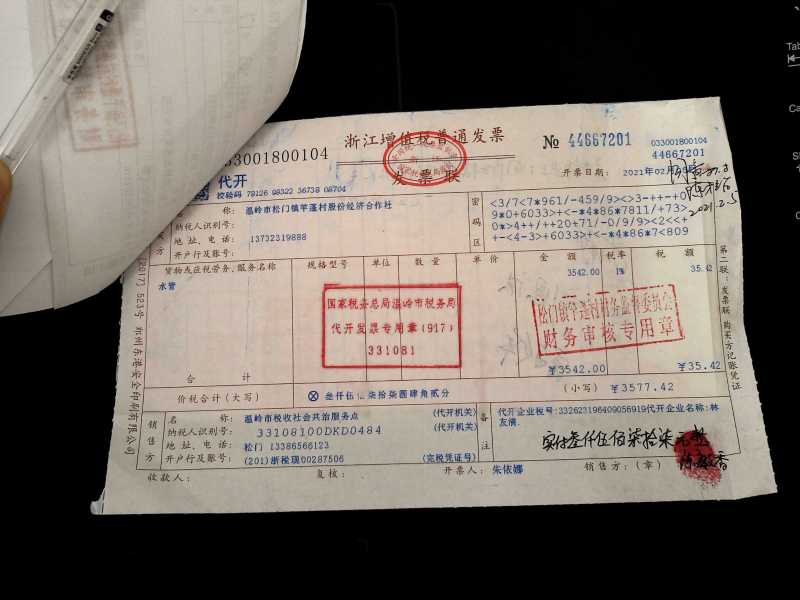 033001800104
浙江增值税普通发票
发票联
№ 44667201
033001800104
44667201
开票日期：
代开
校验码 79126 98322 36738 08704
2021.2.5
名 称：温岭市松门镇竿蓬村股份经济合作社
纳税人识别号：
地 址、电 话：13732319888
开户行及账号：
密码区
<3/7<7*961/-459/9><>3-++-+0
9*0+6033><-*4*86*7811/+73>
+>4++/++20+71/-0/9>9<2<<+
+-<4-3>+6033+<-*4*86*7<809
货物或应税劳务、服务名称 规格型号 单位 数量 单价 金额 税率 税额
水管 3542.00 1% 35.42
国家税务总局温岭市税务局
代开发票专用章（917）
331081
财务审核专用章
合 计 ¥3542.00 ¥35.42
价税合计（大写） ⊗ 叁仟伍佰柒拾柒圆肆角贰分 （小写） ¥3577.42
销售方
名 称：温岭市税收社会共治服务点 （代开机关）
纳税人识别号：33108100DKD0484 （代开机关）
地 址、电 话：松门 13386566123
开户行及账号：(201)浙税现00287506 （完税凭证号）
备注
代开企业税号：332623196409056919代开企业名称：林
友清.
实付叁仟伍佰柒拾柒元整
收款人： 复核： 开票人：朱依娜 销售方：（章）
第二联：发票联 购买方记账凭证
523号 郑州东港安全印刷有限公司